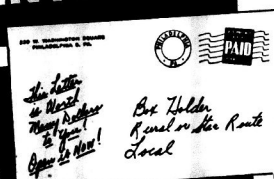 230 W. WASHINGTON SQUARE
PHILADELPHIA 5, PA.
PHILADELPHIA
PA.
PAID
This Letter
is Worth
Many Dollars
to You!
Open it Now!
Box Holder
Rural or Star Route
Local